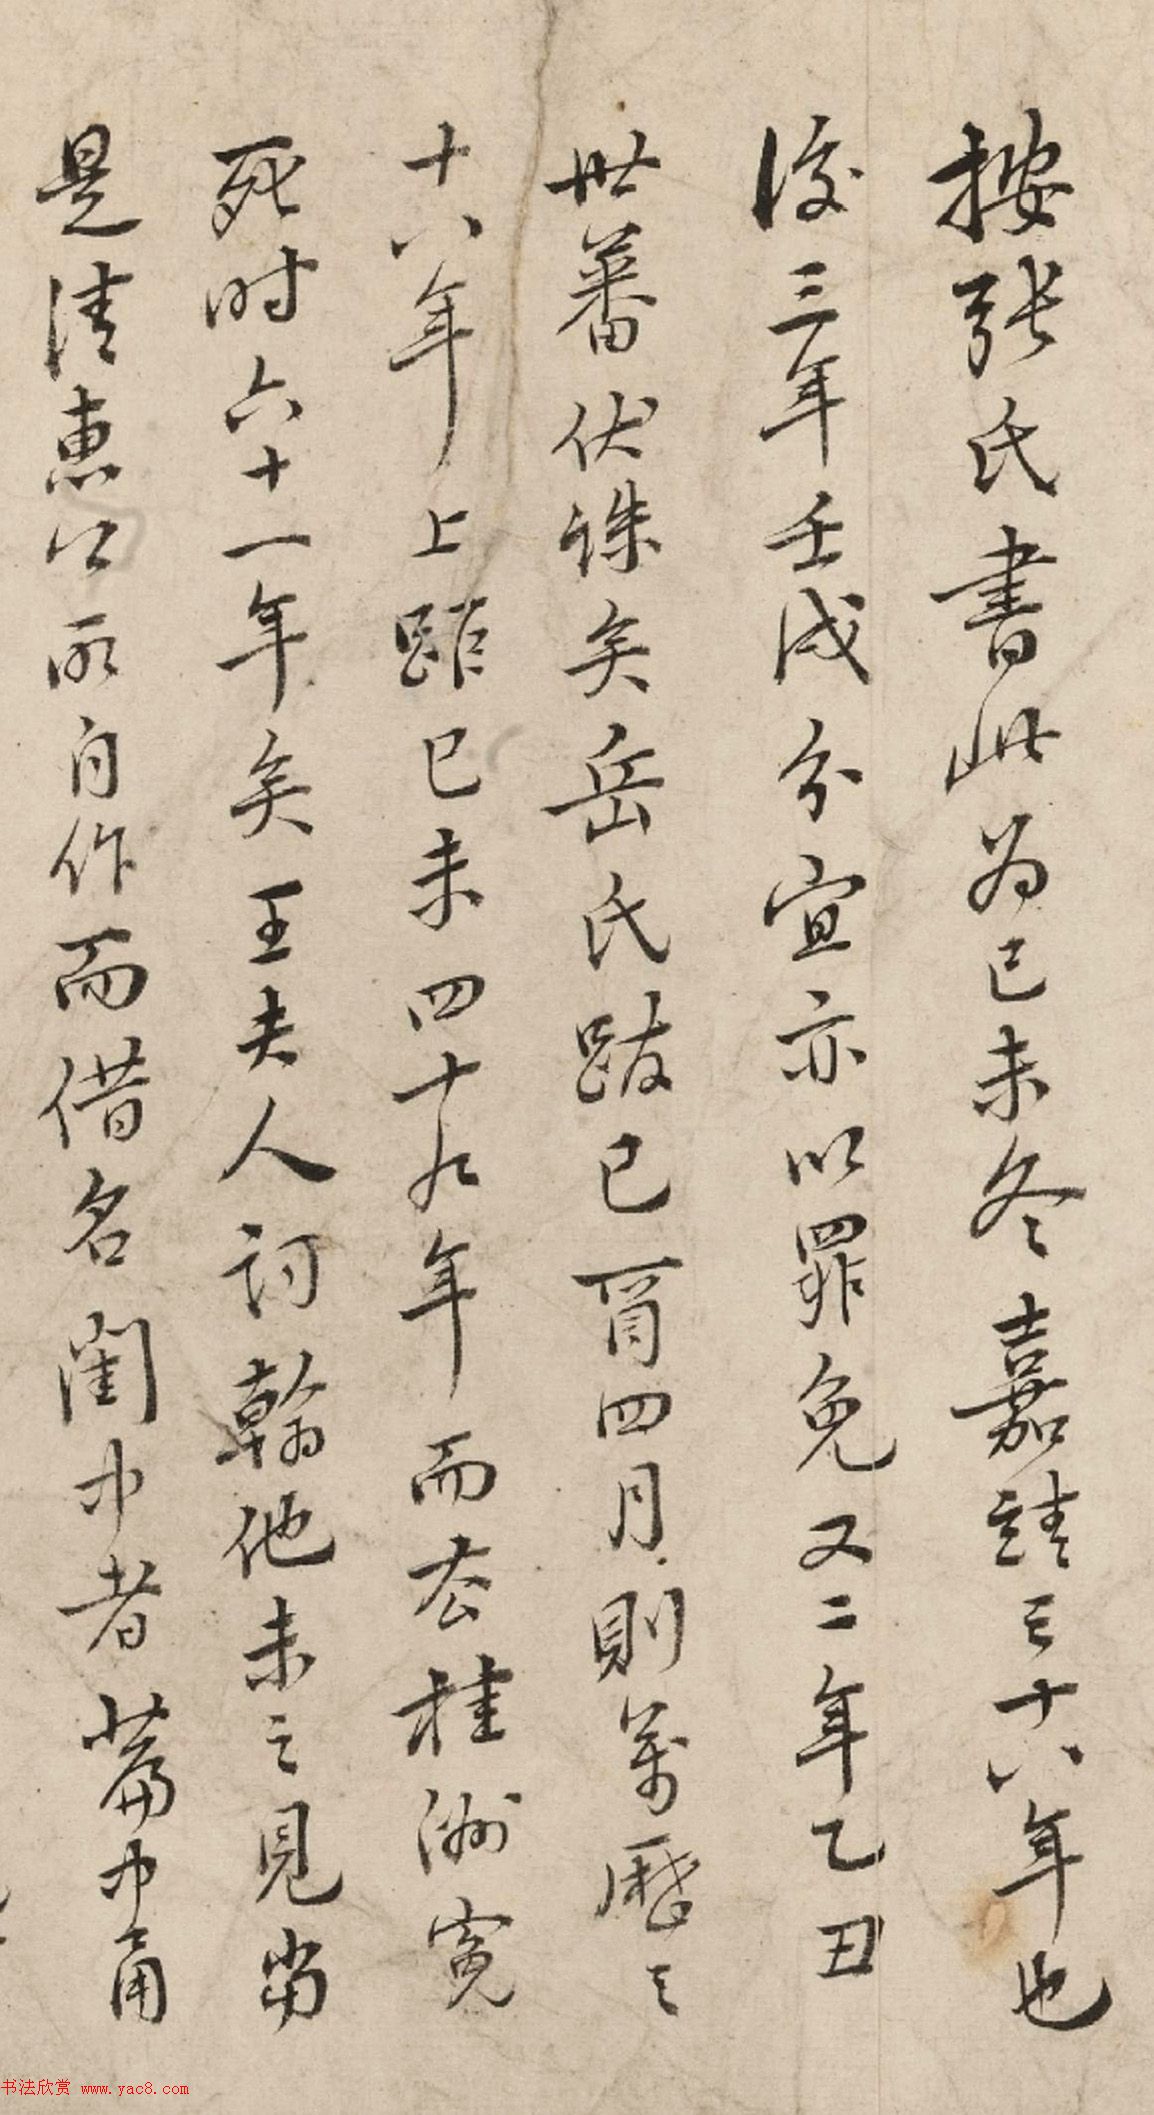 按張氏書此為己未冬嘉靖三十八年也
後三年壬戌分宜亦以罪免又二年乙丑
世蕃伏誅矣岳氏跋己酉四月則萬曆三
十八年上距己未四十九年而去桂洲冤
死时六十一年矣王夫人詞翰他未之見当
是清惠公所自作而借名閨中者篇中甬
书法欣赏 www.yac8.com